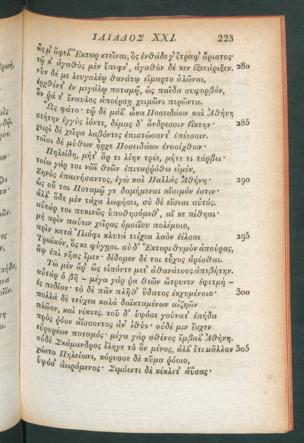 ΙΛΙΑΔΟΣ ΧΧΙ. 223
ὥς μ' ὄφελ' Ἕκτωρ κτεῖναι, ὃς ἐνθάδε γ' ἔτραφ' ἄριστος·
τῷ κ' ἀγαθὸς μὲν ἔπεφν', ἀγαθὸν δέ κεν ἐξενάριξεν. 280
νῦν δέ με λευγαλέῳ θανάτῳ εἵμαρτο ἁλῶναι,
ἐρχθέντ' ἐν μεγάλῳ ποταμῷ, ὡς παῖδα συφορβόν,
ὅν ῥά τ' ἔναυλος ἀποέρσῃ χειμῶνι περῶντα.
Ὣς φάτο· τῷ δὲ μάλ' ὦκα Ποσειδάων καὶ Ἀθήνη
στήτην ἐγγὺς ἰόντε, δέμας δ' ἄνδρεσσιν ἐΐκτην· 285
χειρὶ δὲ χεῖρα λαβόντες ἐπιστώσαντ' ἐπέεσσιν.
τοῖσι δὲ μύθων ἦρχε Ποσειδάων ἐνοσίχθων·
Πηλείδη, μήτ' ἄρ τι λίην τρέε, μήτε τι τάρβει·
τοίω γάρ τοι νῶϊ θεῶν ἐπιταρρόθω εἰμέν,
Ζηνὸς ἐπαινήσαντος, ἐγὼ καὶ Παλλὰς Ἀθήνη· 290
ὡς οὔ τοι Ποταμῷ γε δαμήμεναι αἴσιμόν ἐστιν·
ἀλλ' ὅδε μὲν τάχα λωφήσει, σὺ δὲ εἴσεαι αὐτός.
αὐτάρ τοι πυκινῶς ὑποθησόμεθ', αἴ κε πίθηαι·
μὴ πρὶν παύειν χεῖρας ὁμοιΐου πολέμοιο,
πρὶν κατὰ Ἰλιόφι κλυτὰ τείχεα λαὸν ἐέλσαι 295
Τρωϊκόν, ὅς κε φύγῃσι. σὺ δ' Ἕκτορι θυμὸν ἀπούρας,
ἂψ ἐπὶ νῆας ἴμεν· δίδομεν δέ τοι εὖχος ἀρέσθαι.
Τὼ μὲν ἄρ' ὣς εἰπόντε μετ' ἀθανάτους ἀπεβήτην.
αὐτὰρ ὁ βῆ – μέγα γάρ ῥα θεῶν ὤτρυνεν ἐφετμή –
ἐς πεδίον· τὸ δὲ πᾶν πλῆθ' ὕδατος ἐκχυμένοιο· 300
πολλὰ δὲ τεύχεα καλὰ δαϊκταμένων αἰζηῶν
πλῶον, καὶ νέκυες. τοῦ δ' ὑψόσε γούνατ' ἐπήδα
πρὸς ῥόον ἀΐσσοντος ἀν' ἰθύν· οὐδέ μιν ἔσχεν
εὐρυρέων ποταμός· μέγα γὰρ σθένος ἔμβαλ' Ἀθήνη.
οὐδὲ Σκάμανδρος ἔληγε τὸ ὃν μένος, ἀλλ' ἔτι μᾶλλον 305
χώετο Πηλείωνι, κόρυσσε δὲ κῦμα ῥόοιο,
ὑψόσ' ἀειρόμενος· Σιμόεντι δὲ κέκλετ' ἀΰσας·